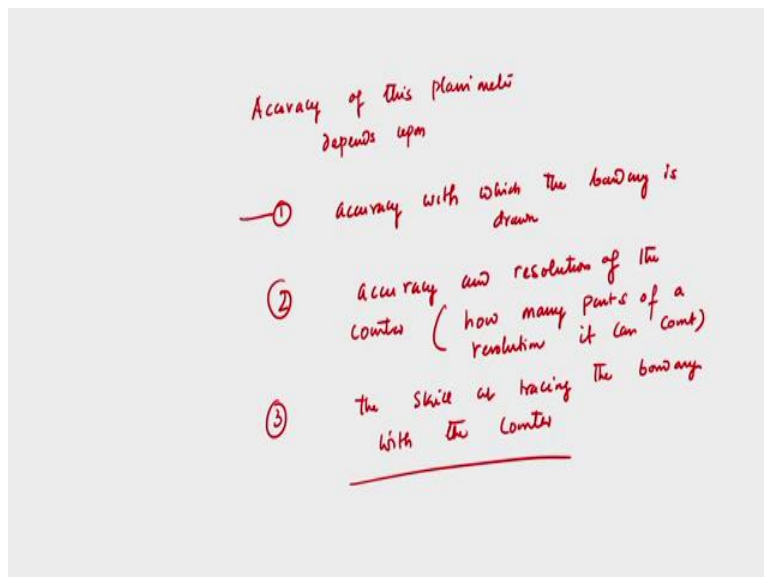 Accuracy of this planimeter
depends upon
① accuracy with which the boundary is
drawn
② accuracy and resolution of the
counter ( how many parts of a
revolution it can count)
③ the skill of tracing the boundary
with the counter